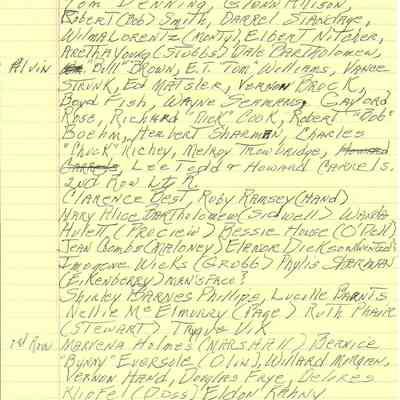 Tom Denning, Glenn Allison,
Robert (Bob) Smith, Darrel Standage,
Wilma Lorentz (Monty), Elbert Nitcher,
Aretha Young (Stubbs) Dale Bartholomew,
Alvin "Bill" Brown, E.T. "Tom" Williams, Vance
Strunk, Ed Matsler, Vernon Brock,
Boyd Fish, Wayne Seamans, Gaylord
Rose, Richard "Dick" Cook, Robert "Bob"
Boehm, Herbert Sharman, Charles
"Chuck" Richey, Melroy Trowbridge, Howard
Carrels, Lee Todd & Howard Carrels.
2nd Row L to R
Clarence Best, Ruby Ramsey (Hand)
Mary Alice Bartholomew (Sidwell) Wanda
Hulett, (Prociew) Bessie House (O'Dell)
Jean Combs (Maloney) Eleanor Dickson
Imogene Wicks (Grobb) Phylis Sharman
(Eikenberry) man's face?
Shirley Barnes Phillips, Lucille Barnts
Nellie McElmurry (Page) Ruth Phaire
(Stewart) Travis Vix
3rd Row Marvena Holmes (Marshall) Bernice
"Bunny" Eversole (Olin), Willard Morgan,
Vernon Hand, Douglas Frye, Delores
Klopfel (Doss) Eldon Rahny